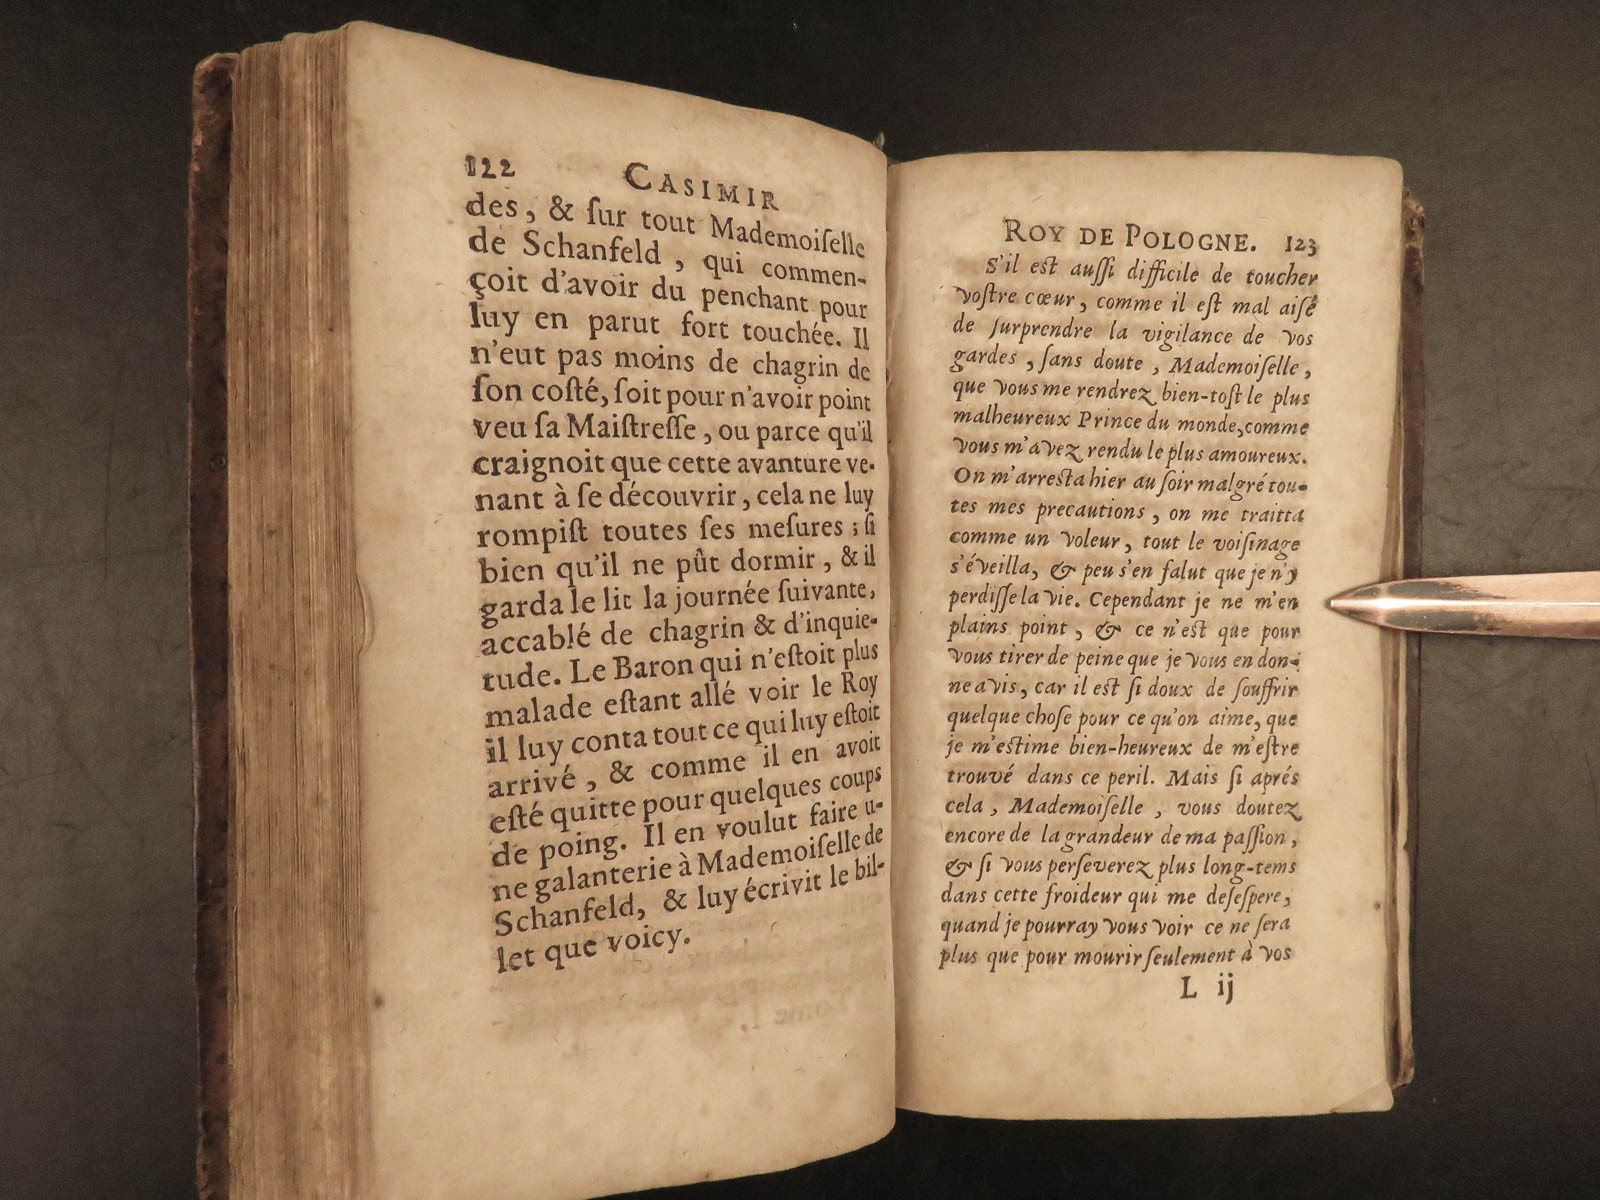 122 CASIMIR
des, & ſur tout Mademoiſelle
de Schanfeld, qui commen-
çoit d'avoir du penchant pour
luy en parut fort touchée. Il
n'eut pas moins de chagrin de
ſon coſté, ſoit pour n'avoir point
veu ſa Maiſtreſſe, ou parce qu'il
craignoit que cette avanture ve-
nant à ſe découvrir, cela ne luy
rompiſt toutes ſes meſures; ſi
bien qu'il ne pût dormir, & il
garda le lit la journée ſuivante,
accablé de chagrin & d'inquie-
tude. Le Baron qui n'eſtoit plus
malade eſtant allé voir le Roy
il luy conta tout ce qui luy eſtoit
arrivé, & comme il en avoit
eſté quitte pour quelques coups
de poing. Il en voulut faire u-
ne galanterie à Mademoiſelle de
Schanfeld, & luy écrivit le bil-
let que voicy.
ROY DE POLOGNE. 123
S'il eſt auſſi difficile de toucher
voſtre cœur, comme il eſt mal aiſé
de ſurprendre la vigilance de vos
gardes, ſans doute, Mademoiſelle,
que vous me rendrez bien-toſt le plus
malheureux Prince du monde, comme
vous m'avez rendu le plus amoureux.
On m'arreſta hier au ſoir malgré tou-
tes mes precautions, on me traitta
comme un voleur, tout le voiſinage
s'éveilla, & peu s'en falut que je n'y
perdiſſe la vie. Cependant je ne m'en
plains point, & ce n'eſt que pour
vous tirer de peine que je vous en don-
ne avis, car il eſt ſi doux de ſouffrir
quelque choſe pour ce qu'on aime, que
je m'eſtime bien-heureux de m'eſtre
trouvé dans ce peril. Mais ſi aprés
cela, Mademoiſelle, vous doutez
encore de la grandeur de ma paſſion,
& ſi vous perſeverez plus long-tems
dans cette froideur qui me deſeſpere,
quand je pourray vous voir ce ne ſera
plus que pour mourir ſeulement à vos
L ij